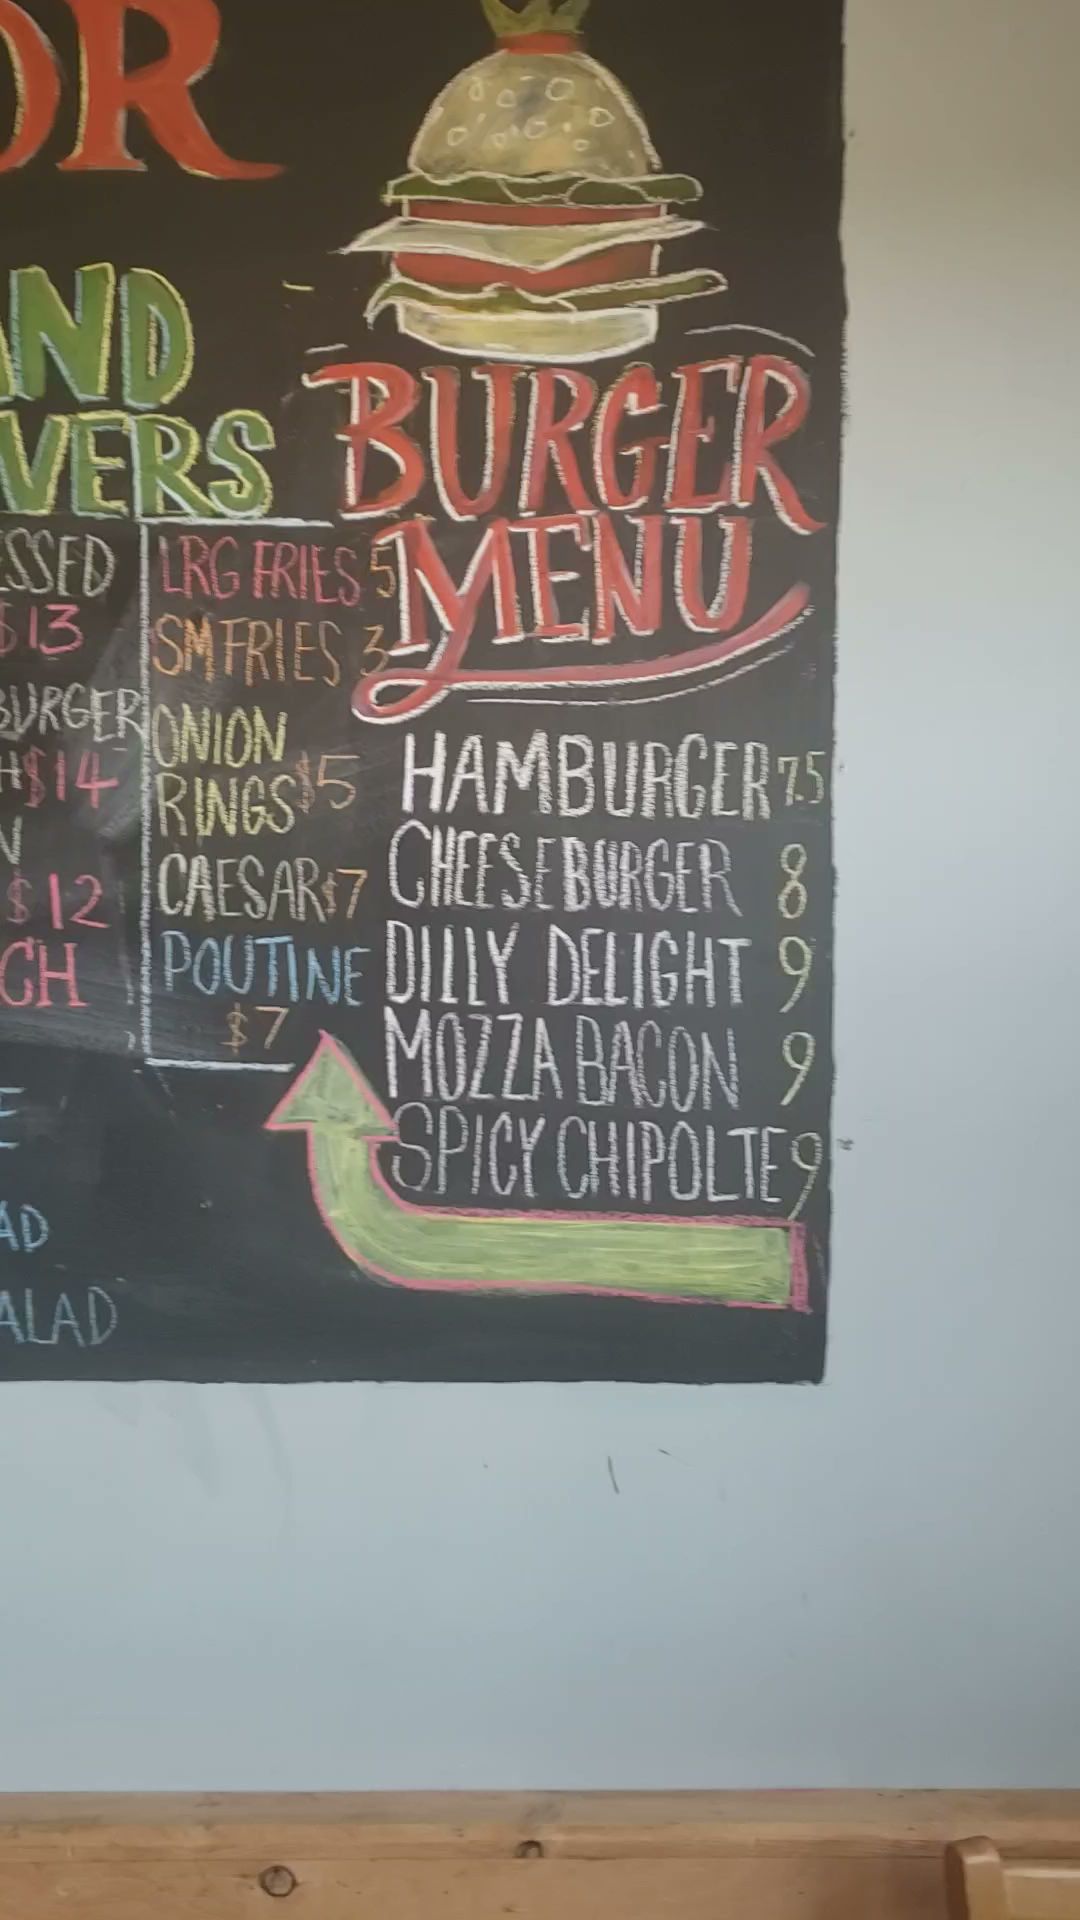 OR
AND
VERS
ESSED
$13
BURGER
H $14
N
$12
CH
E
E
AD
ALAD
LRG FRIES 5
SM FRIES 3
ONION
RINGS $5
CAESAR $7
POUTINE
$7
BURGER
MENU
HAMBURGER 7.5
CHEESEBURGER 8
DILLY DELIGHT 9
MOZZA BACON 9
SPICY CHIPOLTE 9